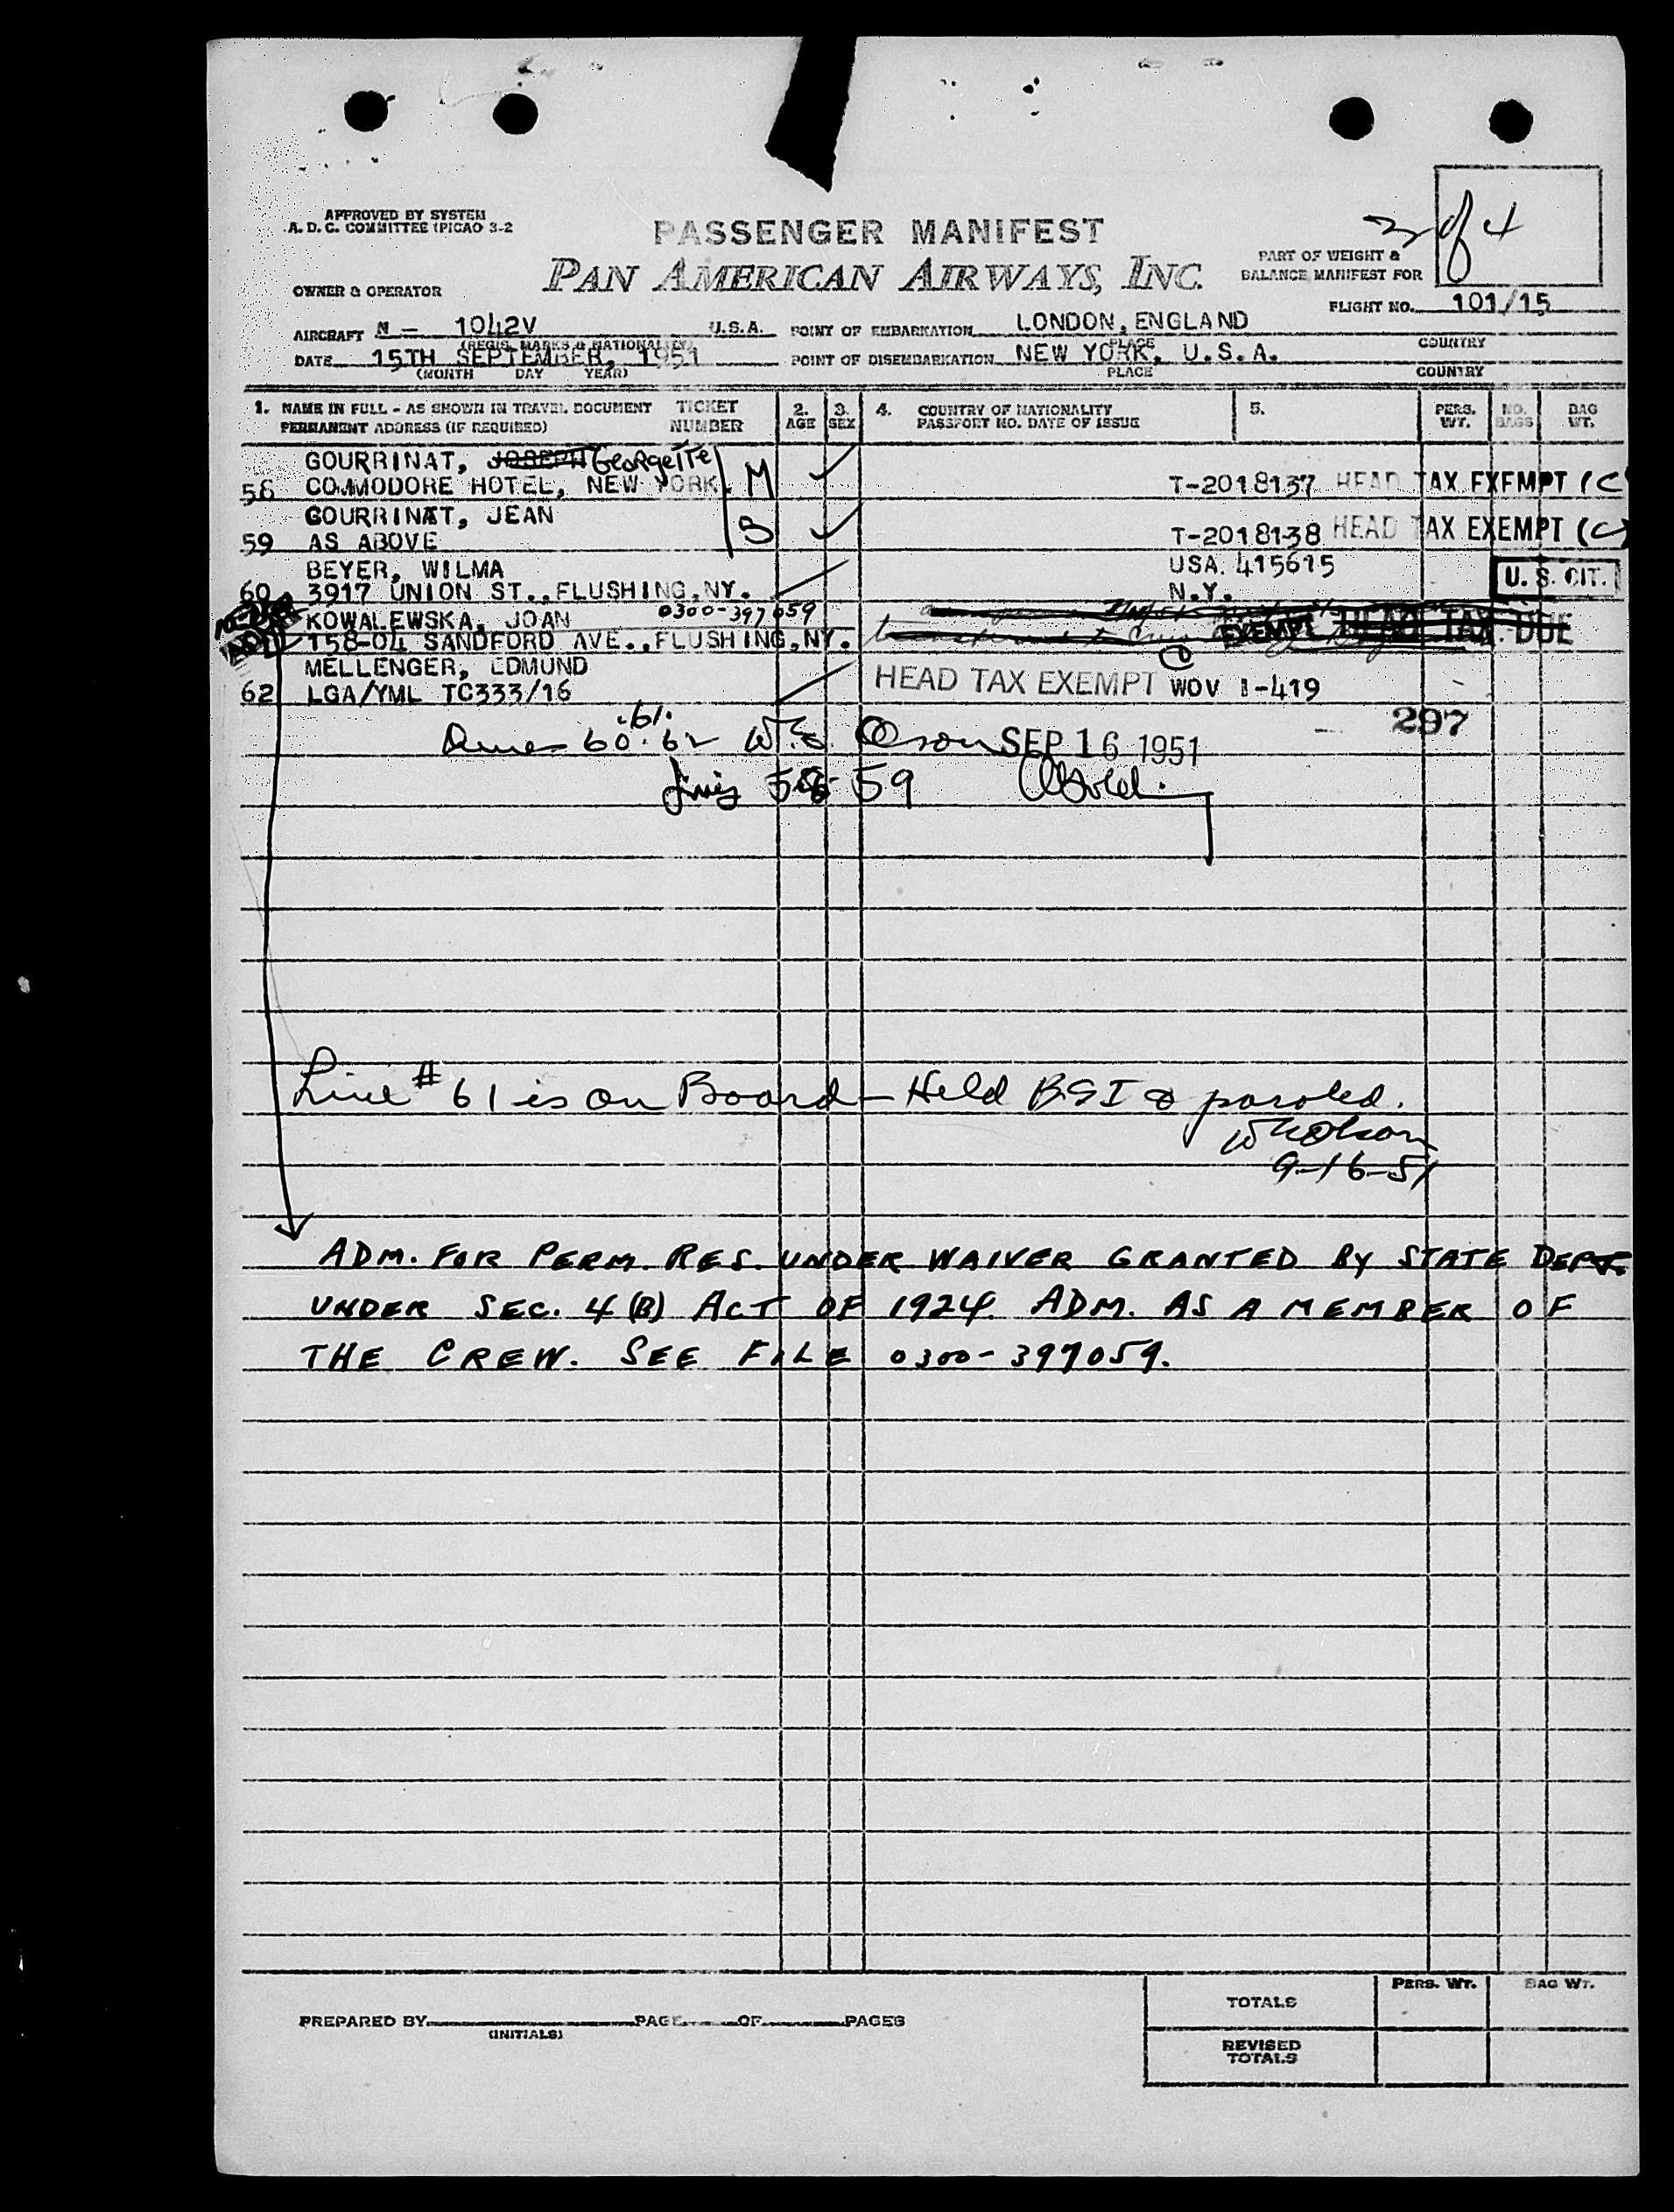 APPROVED BY SYSTEM
A. D. C. COMMITTEE (PICAO 3-2
PASSENGER MANIFEST
3 of 4
PAN AMERICAN AIRWAYS, INC.
PART OF WEIGHT &
BALANCE MANIFEST FOR
OWNER & OPERATOR
FLIGHT NO. 101/15
AIRCRAFT N - 1042V U.S.A. POINT OF EMBARKATION LONDON, ENGLAND
(REGIS. MARKS & NATIONALITY) PLACE COUNTRY
DATE 15TH SEPTEMBER, 1951 POINT OF DISEMBARKATION NEW YORK, U.S.A.
(MONTH DAY YEAR) PLACE COUNTRY
1. NAME IN FULL - AS SHOWN IN TRAVEL DOCUMENT TICKET 2. 3. 4. COUNTRY OF NATIONALITY 5. PERS. NO. BAG
PERMANENT ADDRESS (IF REQUIRED) NUMBER AGE SEX PASSPORT NO. DATE OF ISSUE WT. BAGS WT.
GOURRINAT, JOSEPH Georgette
58 COMMODORE HOTEL, NEW YORK. M T-2018137 HEAD TAX EXEMPT (C)
GOURRINAT, JEAN
59 AS ABOVE S T-2018138 HEAD TAX EXEMPT (C)
BEYER, WILMA USA. 415615
60 3917 UNION ST., FLUSHING, NY. N.Y. U. S. CIT.
KOWALEWSKA, JOAN 0300-397059
158-04 SANDFORD AVE., FLUSHING, NY. EXEMPT HEAD TAX DUE
MELLENGER, EDMUND
62 LGA/YML TC333/16 HEAD TAX EXEMPT WOV 1-419
297
61.
60. 62 SEP 16 1951
58 59
Line # 61 is on Board - Held BSI & paroled.
W E Olson
9-16-51
ADM. FOR PERM. RES. UNDER WAIVER GRANTED BY STATE DEPT.
UNDER SEC. 4 (B) ACT OF 1924. ADM. AS A MEMBER OF
THE CREW. SEE FILE 0300-397059.
PERS. WT. BAG WT.
TOTALS
PREPARED BY PAGE OF PAGES
(INITIALS)
REVISED
TOTALS